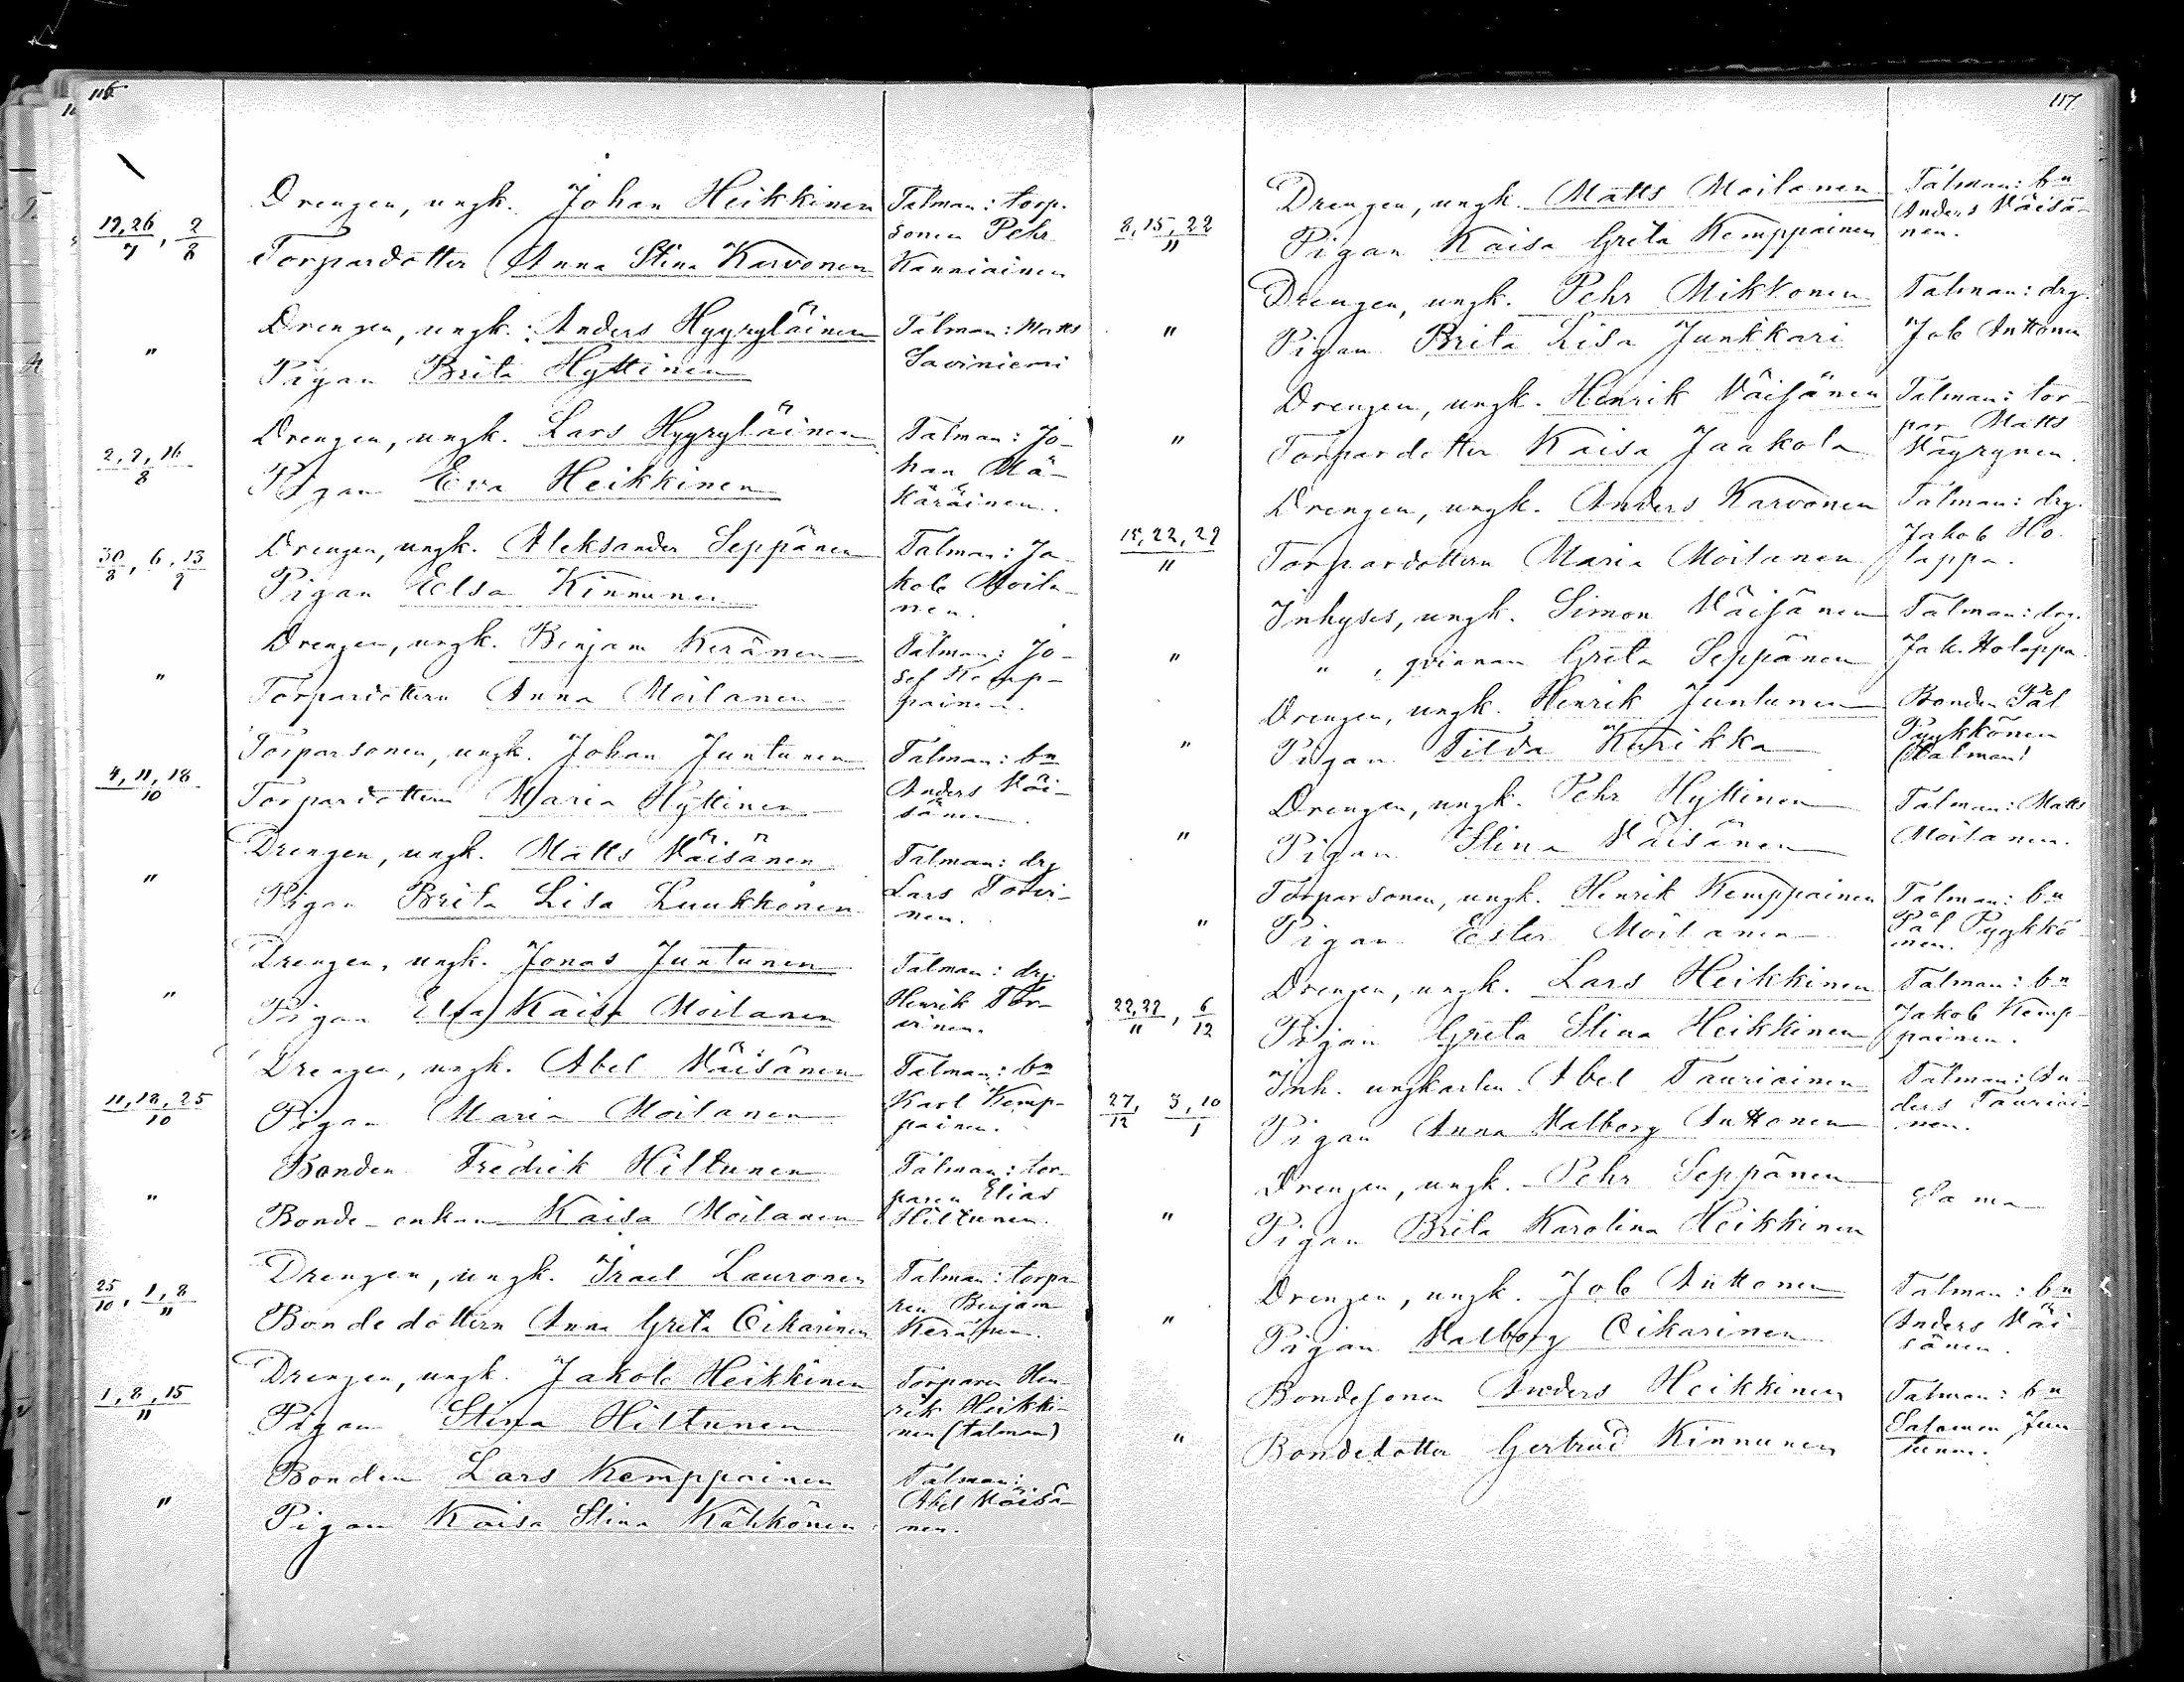 116
Drengen, ungk. Johan Heikkinen Talman: torp.
19,26/7, 2/8 sonen Pehr
Torpardotter Anna Stina Karvonen Kanniainen
Drengen, ungk.: Anders Hyyryläinen Talman: Matts
" Saviniemi
Pigan Brita Hyttinen
Drengen, ungk. Lars Hyyryläinen Talman: Jo-
2,9,16/8 han Mä-
Pigan Eva Heikkinen käräinen.
Drengen, ungk. Aleksander Seppänen Talman: Ja-
30/8, 6,13/9 kob Moila-
Pigan Elsa Kinnunen nen.
Drengen, ungk. Benjam Keränen Talman: Jo-
" sef Kemp-
Torpardottern Anna Moilanen painen.
Torparsonen, ungk. Johan Juntunen Talman: bn
4,11,18/10 Anders Väi-
Torpardottern Maria Hyttinen sänen.
Drengen, ungk. Matts Väisänen Talman: drg
" Lars Torvi-
Pigan Brita Lisa Luukkonen nen.
Drengen, ungk. Jonas Juntunen Talman: drg.
" Henrik Tor-
Pigan Elsa Kaisa Moilanen vinen.
Drengen, ungk. Abel Väisänen Talman: bn
11,18,25/10 Karl Kemp-
Pigan Maria Moilanen painen.
Bonden Fredrik Hiltunen Talman: tor-
" paren Elias
Bonde-enkan Kaisa Moilanen Hiltunen.
Drengen, ungk. Israel Lauronen Talman: torpa-
25/10, 1,8/11 ren Benjam
Bondedottern Anna Greta Oikarinen Keränen.
Drengen, ungk. Jakob Heikkinen Torparen Hen-
1,8,15/11 rik Heikki-
Pigan Stina Hiltunen nen (talman)
Bonden Lars Kemppainen Talman:
" Abel Väisä-
Pigan Kaisa Stina Kähkönen nen.
117.
Drengen, ungk. Matts Moilanen Talman: bn
8,15,22/11 Anders Väisä-
Pigan Kaisa Greta Kemppainen nen.
Drengen, ungk. Pehr Mikkonen Talman: drg.
" Pigan Brita Lisa Junkkari Job Anttonen
Drengen, ungk. Henrik Väisänen Talman: tor-
" par Matts
Torpardotter Kaisa Jaakola Väyrynen.
Drengen, ungk. Anders Karvonen Talman: drg.
15,22,29/11 Jakob Ho-
Torpardottern Maria Moilanen lappa.
Inhyses, ungk. Simon Väisänen Talman: drg.
" " , qvinnan Greta Seppänen Jak. Holappa
Drengen, ungk. Henrik Juntunen Bonden Pål
" Pyykkönen
Pigan Tilda Karikka (talman)
Drengen, ungk. Pehr Hyttinen Talman: Matts
" Pigan Stina Väisänen Moilanen.
Torparsonen, ungk. Henrik Kemppainen Talman: bn
" Pål Pyykkö-
Pigan Ester Moilanen nen.
Drengen, ungk. Lars Heikkinen Talman: bn
22,29/11, 6/12 Jakob Kemp-
Pigan Greta Stina Heikkinen painen.
Inh. ungkarlen Abel Tauriainen Talman: An-
27/12, 3,10/1 ders Tauriai-
Pigan Anna Valborg Anttonen nen.
Drengen, ungk. Pehr Seppänen
" Sama
Pigan Brita Karolina Heikkinen
Drengen, ungk. Job Anttonen Talman: bn
" Anders Väi-
Pigan Valborg Oikarinen sänen.
Bondesonen Anders Heikkinen Talman: bn
" Salomon Jun-
Bondedotter Gertrud Kinnunen tunen.